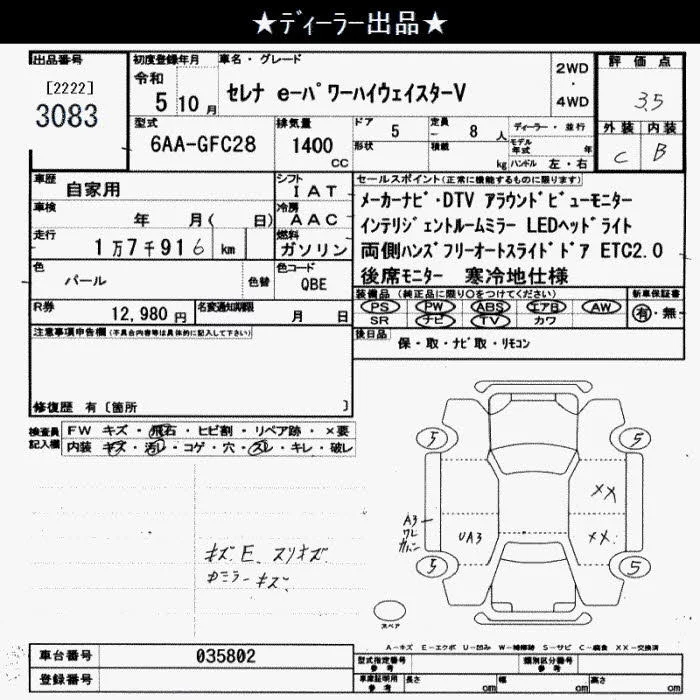 ★ディーラー出品★
出品番号
[2222]
3083
初度登録年月
令和
5 10 月
車名・グレード
セレナ e-パワーハイウェイスターV
2WD
・
4WD
評価点
3.5
外装 内装
C B
型式
6AA-GFC28
排気量
1400
CC
ドア
5
定員
- 8 人
形状
積載
kg
ディーラー・並行
モデル年式 年
ハンドル 左・右
車歴
自家用
シフト
I A T
車検
年 月( 日)
冷房
A A C
走行
1万7千916 km
燃料
ガソリン
色
パール
色替
色コード
QBE
R券
12,980 円
名変通知期限
月 日
セールスポイント(正常に機能するものに限ります)
メーカーナビ・DTV アラウンドビューモニター
インテリジェントルームミラー LEDヘッドライト
両側ハンズフリーオートスライドドア ETC2.0
後席モニター 寒冷地仕様
装備品 (純正品に限り○をつけてください)
PS PW ABS エアB AW
SR ナビ TV カワ
新車保証書
有・無
後日品
保・取・ナビ取・リモコン
注意事項申告欄(不具合内容等は具体的に記入して下さい)
修復歴 有〔箇所 〕
検査員
記入欄
FW キズ・飛石・ヒビ割・リペア跡・×要
内装 キズ・汚レ・コゲ・穴・スレ・キレ・破レ
キズ.E.スリキズ
ミラーキズ
5 5
XX
A3
ワレ
UA3
XX
5 5
スペア
A-キズ E-エクボ U-凹み W-補修跡 S-サビ C-腐食 XX-交換済
車台番号
035802
登録番号
型式指定番号
参考
類別区分番号
参考
車庫証明用
参考
長さ cm
幅 cm
高さ cm